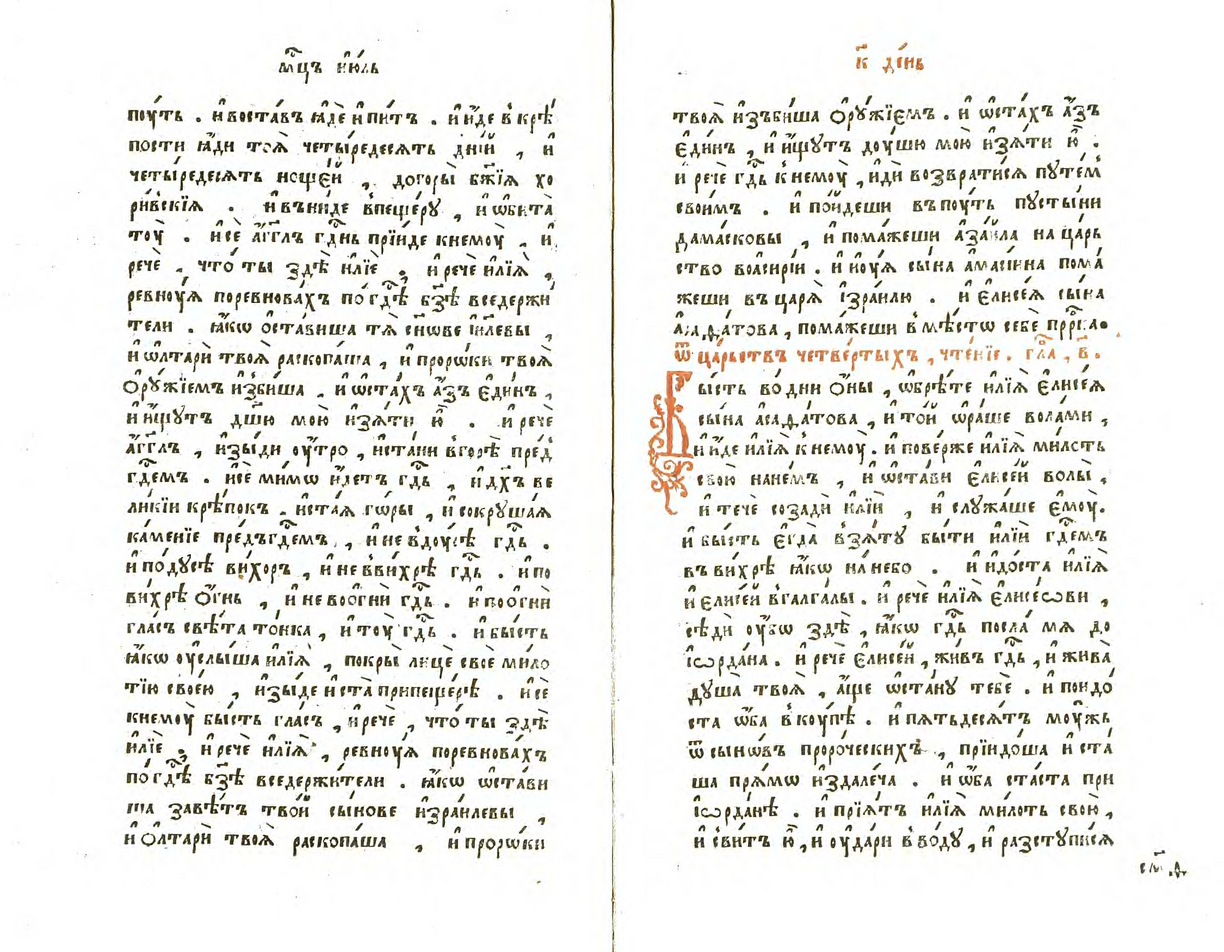 мц҃ъ ию́ль
поу́ть . и҆ воста́въ ꙗ҆дѐ и҆ пи́тъ . и҆ и҆́де в крѣ́
пости ꙗ҆́ди тоѧ̀ четы́редесѧть дні́й , и҆
четы́редесѧть ноще́й , до горы̀ бж҃їѧ хо
ри́вскїѧ . и҆ вни́де в пеще́ру , и҆ ѡ҆бита̀
тоу̀ . и҆ сѐ а҆́гг҃лъ гд҃нь прїи́де к немоу̀ , и҆
речѐ , что̀ ты̀ здѣ̀ и҆лїѐ , и҆ речѐ и҆лїѧ̀ ,
ревноу́ѧ поревнова́хъ по гд҃ѣ бз҃ѣ вседержи́
тели . ꙗ҆́кѡ ѻ҆ста́виша тѧ̀ сн҃ове і҆и҃левы ,
и҆ ѡ҆лтарѝ твоѧ̀ раскопа́ша , и҆ проро́ки твоѧ̀
ѻ҆ру́жїемъ и҆зби́ша , и҆ ѡ҆ста́хъ а҆́зъ є҆ди́нъ ,
и҆ и҆́щутъ дш҃ю мою̀ и҆зѧ́ти ю҆̀ . и҆ речѐ
а҆́гг҃лъ , и҆зы́ди оу҆́тро , и҆ ста́ни в горѣ̀ пред̾
гд҃емъ . и҆ сѐ ми́мѡ и҆́детъ гд҃ь , и҆ дх҃ъ ве
ли́кіи крѣ́покъ . и҆стаѧ го́ры , и҆ сокруша́ѧ
ка́менїе предъ гд҃емъ , и҆ не в доу́сѣ гд҃ь .
и҆ по ду́сѣ ви́хорь , и҆ не в ви́хрѣ гд҃ь . и҆ по
ви́хрѣ ѻ҆́гнь , и҆ не во ѻ҆гнѝ гд҃ь . и҆ по ѻ҆гнѝ
гла́съ свѣ́та то́нка , и҆ тоу̀ гд҃ь . и҆ бы́сть
ꙗ҆́кѡ оу҆слы́ша и҆лїѧ̀ , покры̀ лицѐ своѐ ми́ло
тїю свое́ю , и҆зы́де и҆ ста̀ при пеще́рѣ . и҆ сѐ
к немоу̀ бы́сть гла́съ , и҆ речѐ , что̀ ты̀ здѣ̀
и҆лїѐ , и҆ речѐ и҆лїѧ̀ , ревноу́ѧ поревнова́хъ
по гд҃ѣ бз҃ѣ вседержи́тели . ꙗ҆́кѡ ѡ҆ста́ви
ша завѣ́тъ тво́й сы́нове и҆зра́илевы ,
и҆ ѻ҆лтарѝ твоѧ̀ раскопа́ша , и҆ проро́ки
к҃ де́нь
твоѧ̀ и҆зъби́ша ѻ҆ру́жїємъ . и҆ ѡ҆ста́хъ а҆́зъ
є҆ди́нъ , и҆ и҆́щутъ доу́шю мою̀ и҆зѧ́ти ю҆̀ .
и҆ речѐ гд҃ь к немоу̀ , и҆дѝ возврати́сѧ путе́м
свои́мъ . и҆ по́идеши въ поу́ть пусты́ни
дама́сковы , и҆ пома́жеши а҆заи́ла на ца́рь
ство во а҆сирі́и . и҆ и҆оу́ѧ сы́на а҆маси́ина пома́
жеши въ царѧ̀ і҆зра́илю . и҆ є҆лисе́ѧ сы́на
а҆саѳа́това , пома́жеши в мѣ́стѡ себѐ прⷪ҇рка .
ѿ ца́рьствъ четве́ртыхъ , чте́нїе . гл҃а , в҃ .
Бы́сть во днѝ ѻ҆́ны , ѡ҆брѣ́те и҆лїѧ̀ є҆лисе́ѧ
сы́на а҆саѳа́това , и҆ то́й ѡ҆ра́ше вола́ми ,
и҆ и҆́де и҆лїѧ̀ к немоу̀ . и҆ пове́рже и҆лїѧ̀ ми́лсть
свою̀ на не́мъ , и҆ ѡ҆ста́ви є҆лисе́й волы̀ ,
и҆ течѐ созадѝ и҆лїѝ , и҆ служа́ше є҆моу̀ .
и҆ бы́сть є҆гда̀ взѧ́ту бы́ти и҆лїѝ гд҃емъ
въ ви́хрѣ ꙗ҆́кѡ на не́бо . и҆ и҆до́ста и҆лїѧ̀
и҆ є҆лисе́й в галга́лы . и҆ речѐ и҆лїѧ̀ є҆лисе́ови ,
сѣдѝ оу҆́бѡ здѣ̀ , ꙗ҆́кѡ гд҃ь посла̀ мѧ до
і҆ѻрда́на . и҆ речѐ є҆лисе́й , жи́въ гд҃ь , и҆ жива̀
душа̀ твоѧ̀ , а҆́ще ѡ҆ста́ну тебѐ . и҆ поидо́
ста ѡ҆́ба в коу́пѣ . и҆ пѧтьдесѧ́тъ моу́жь
ѿ сыно́въ проро́ческихъ , прїидо́ша и҆ ста́
ша прѧ́мѡ и҆здале́ча . и҆ ѡ҆́ба ста́ста при
і҆ѻрда́нѣ . и҆ прїѧ́тъ и҆лїѧ̀ ми́лоть свою̀ ,
и҆ сви́тъ ю҆̀ , и҆ оу҆да́ри в во́ду , и҆ разступи́сѧ